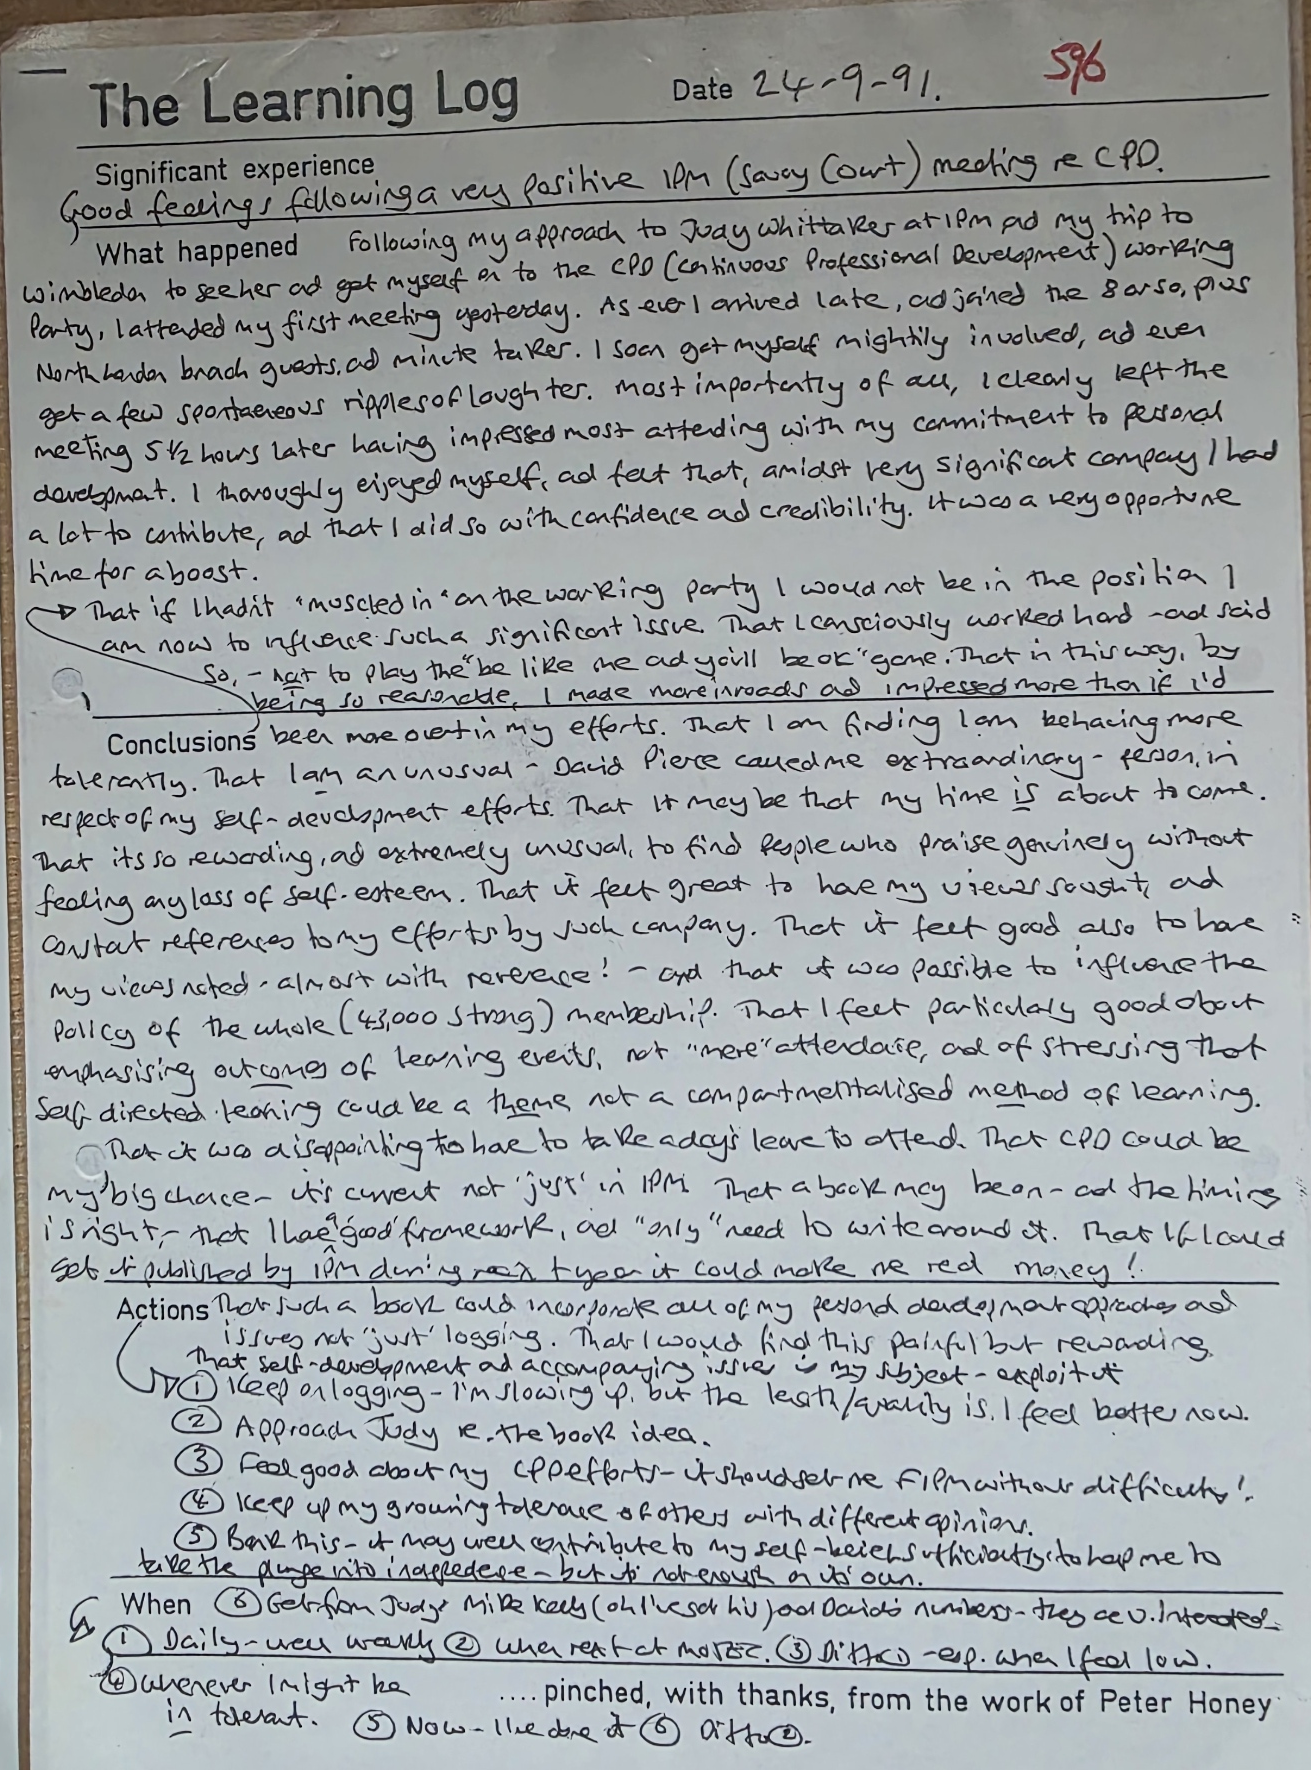 The Learning Log Date 24-9-91. 596
Significant experience
Good feelings following a very positive IPM (Savoy Court) meeting re CPD.
What happened Following my approach to Judy Whittaker at IPM ad my trip to
Wimbledon to see her ad get myself on to the CPD (Continuous Professional Development) working
Party, I attended my first meeting yesterday. As ever I arrived late, ad joined the 8 or so, plus
North London branch guests, ad minute taker. I soon got myself mightily involved, ad even
got a few spontaneous ripples of laughter. Most importantly of all, I clearly left the
meeting 5 1/2 hours later having impressed most attending with my commitment to personal
development. I thoroughly enjoyed myself, ad felt that, amidst very significant company I had
a lot to contribute, ad that I did so with confidence ad credibility. It was a very opportune
time for a boost.
That if I hadn't "muscled in" on the working party I would not be in the position I
am now to influence such a significant issue. That I consciously worked hard - ad said
so, - not to play the "be like me ad you'll be ok" game. That in this way, by
being so reasonable, I made more inroads ad impressed more than if I'd
Conclusions been more overt in my efforts. That I am finding I am behaving more
tolerantly. That I am an unusual - David Pierce called me extraordinary - person, in
respect of my self-development efforts. That it may be that my time is about to come.
That its so rewarding, ad extremely unusual, to find people who praise genuinely without
feeling any loss of self-esteem. That it felt great to have my views sought, ad
constant references to my efforts by such company. That it felt good also to have
my views noted - almost with reverence! - and that it was possible to influence the
policy of the whole (43,000 strong) membership. That I felt particularly good about
emphasising outcomes of learning events, not "mere" attendance, ad of stressing that
self-directed learning could be a theme not a compartmentalised method of learning.
That it was disappointing to have to take a day's leave to attend. That CPD could be
my 'big chance - it's current not 'just' in IPM. That a book may be on - ad the timing
is right, - that I have a 'good' framework, ad "only" need to write around it. That if I could
get it published by IPM during next year it could make me real money!
Actions That such a book could incorporate all of my personal development approaches ad
issues not 'just' logging. That I would find this painful but rewarding.
That self-development ad accompanying issues is my subject - exploit it
① Keep on logging - I'm slowing up, but the length/quality is. I feel better now.
② Approach Judy re. the book idea.
③ Feel good about my CPD efforts - it should get me FIPM without difficulty!
④ Keep up my growing tolerance of others with different opinions.
⑤ Bank this - it may well contribute to my self-belief sufficiently to help me to
take the plunge into independence - but it's not enough on its' own.
When ⑥ Get from Judy Mike Kelly (oh I've got his) ad David's numbers - they are v. interested.
① Daily - well weekly ② When next at ③ Ditto - esp. when I feel low.
④ Whenever I might be .... pinched, with thanks, from the work of Peter Honey
intolerant. ⑤ Now - I've done it ⑥ Ditto ②.